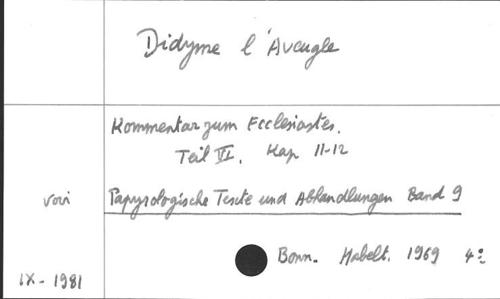 Didyme l'Aveugle
Kommentar zum Ecclesiastes.
Teil VI. Kap 11-12
voir Papyrologische Texte und Abhandlungen Band 9
Bonn. Habelt. 1969 4º
IX - 1981